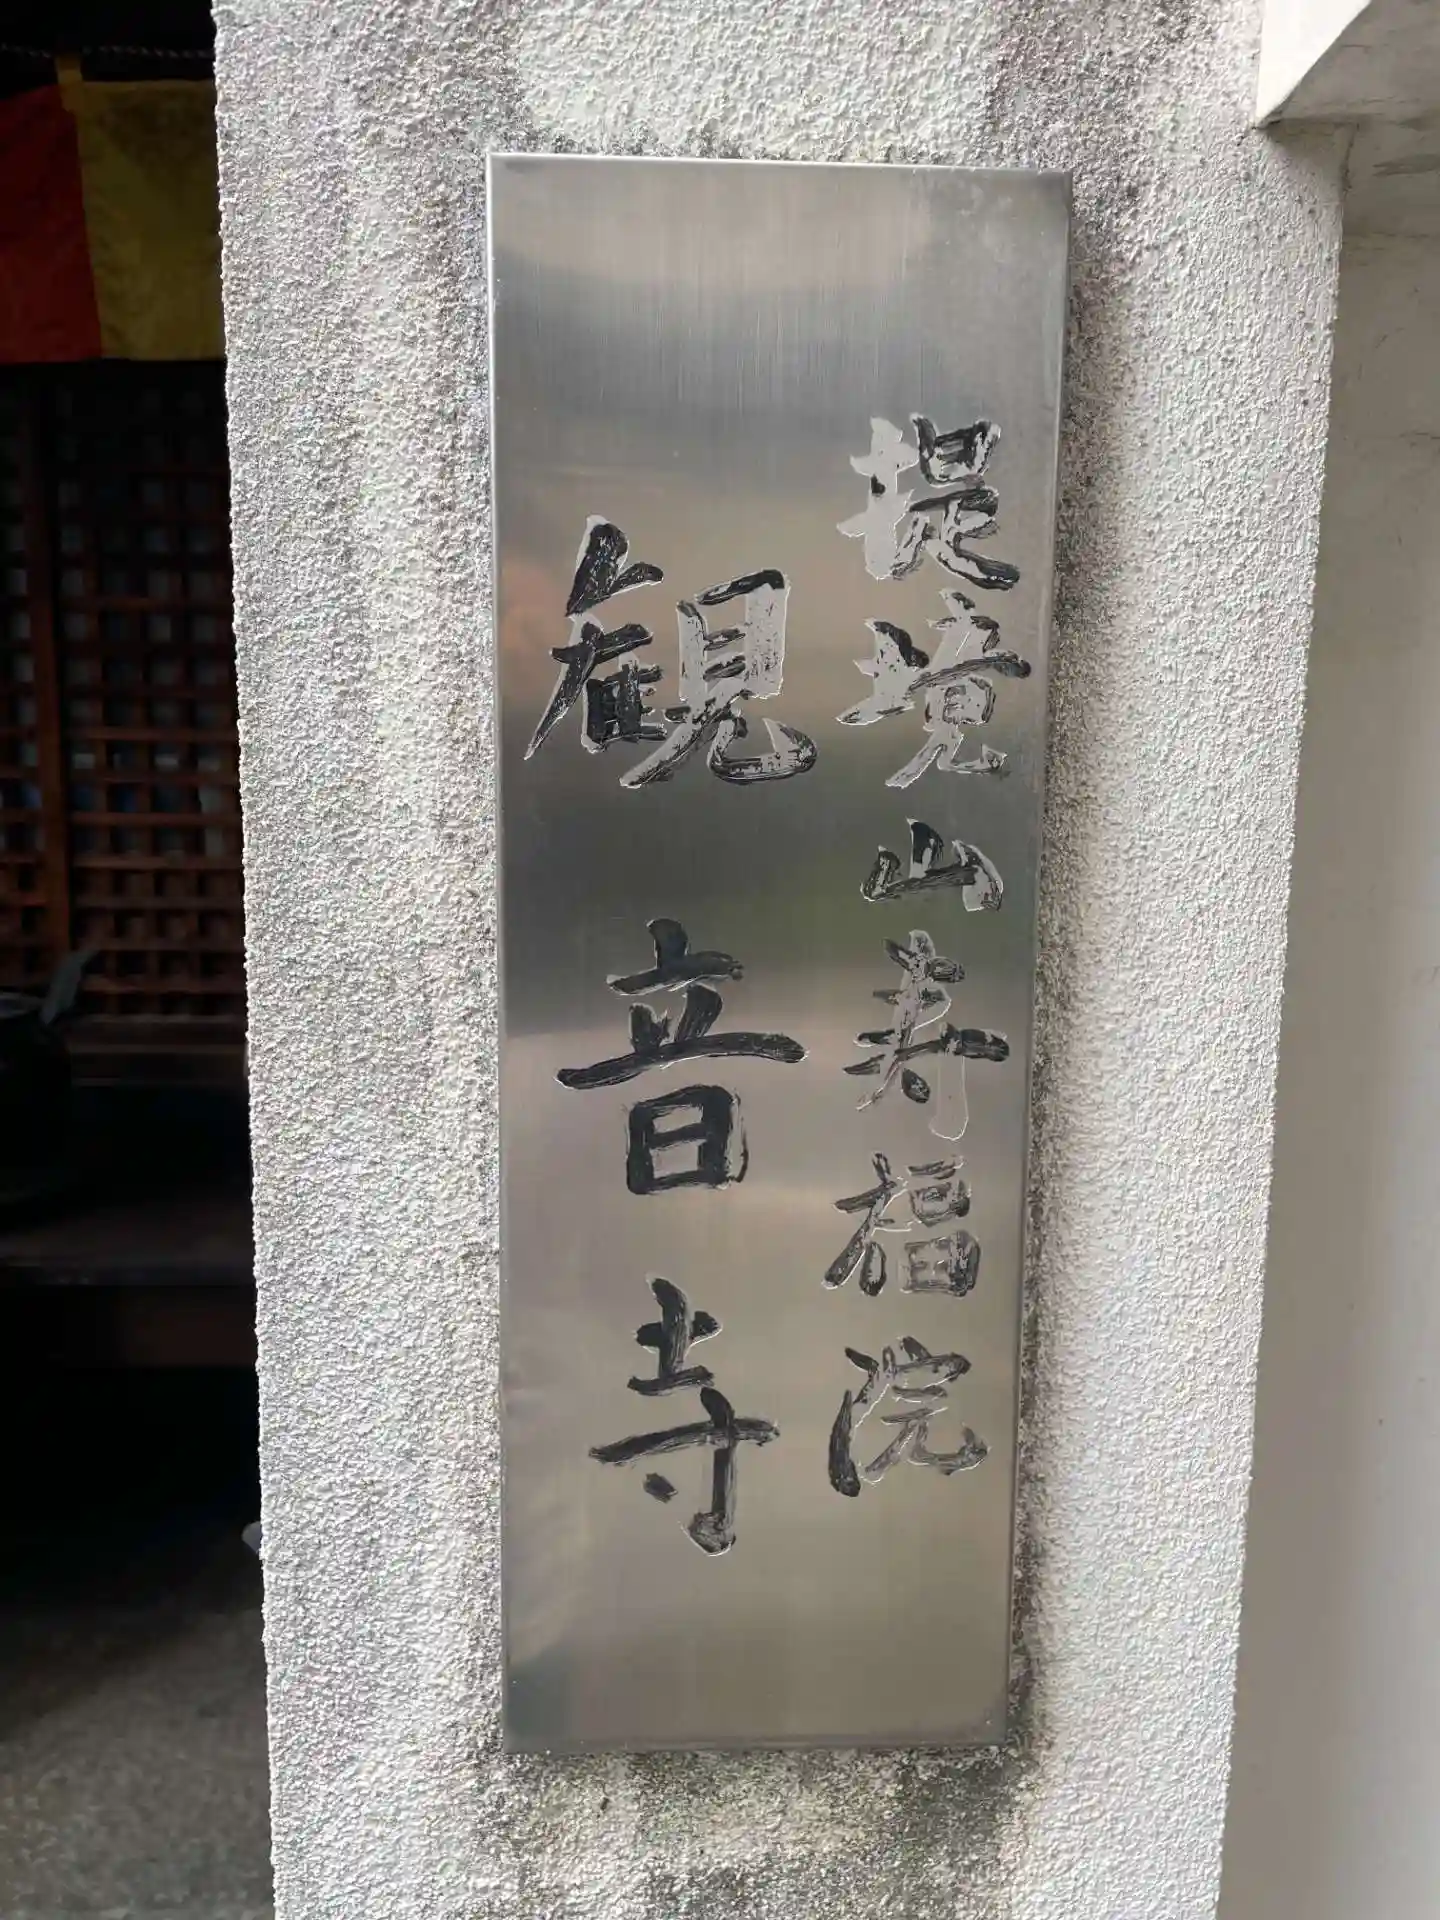 堤境山寿福院
観音寺